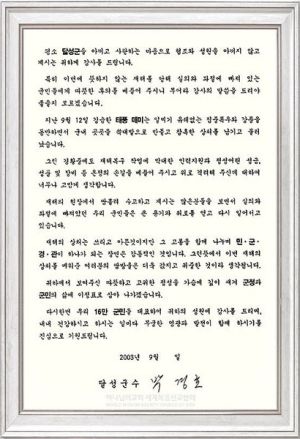 평소 달성군을 아끼고 사랑하는 마음으로 협조와 성원을 아끼지 않고
계시는 귀하께 감사를 드립니다.
특히 이번에 뜻하지 않은 재해를 당해 실의와 좌절에 빠져 있는
군민들에게 따뜻한 후의를 베풀어 주시니 무어라 감사의 말씀을 드려야
좋을지 모르겠습니다.
지난 9월 12일 강습한 태풍 매미는 일찍기 유례없는 집중폭우와 강풍을
동반하면서 군내 곳곳을 쑥대밭으로 만들고 참혹한 상처를 남기고 물러
났습니다.
그런 경황중에도 재해복구 작업에 막대한 인력지원과 정성어린 성금,
성품 및 장비 등 온정의 손길을 베풀어 주시고 위로 격려해 주신데 대하여
너무나 고맙게 생각합니다.
재해의 현장에서 땀흘려 수고하고 계시는 많은분들을 보면서 실의와
좌절에 빠져있던 우리 군민들은 큰 용기와 위로를 얻고 다시 일어서고
있습니다.
재해의 상처는 쓰리고 아픈것이지만 그 고통을 함께 나누며 민·군·
경·관이 하나가 되는 장면은 감동적인 것입니다. 그런뜻에서 이번 재해의
상처를 메워준 여러분의 땀방울은 더욱 값지고 귀중한 것이라 생각됩니다.
귀하께서 보여주신 따뜻하고 고귀한 정성을 가슴에 깊이 새겨 군정과
군민의 삶에 이정표로 삼아 나가겠습니다.
다시한번 우리 16만 군민을 대표하여 귀하의 성원에 감사를 드리며,
내내 건강하시고 하시는 일마다 무궁한 영광과 발전이 함께 하시기를
진심으로 기원드립니다.
2003년 9월 일
달성군수 박경호
하나님의교회 세계복음선교협회